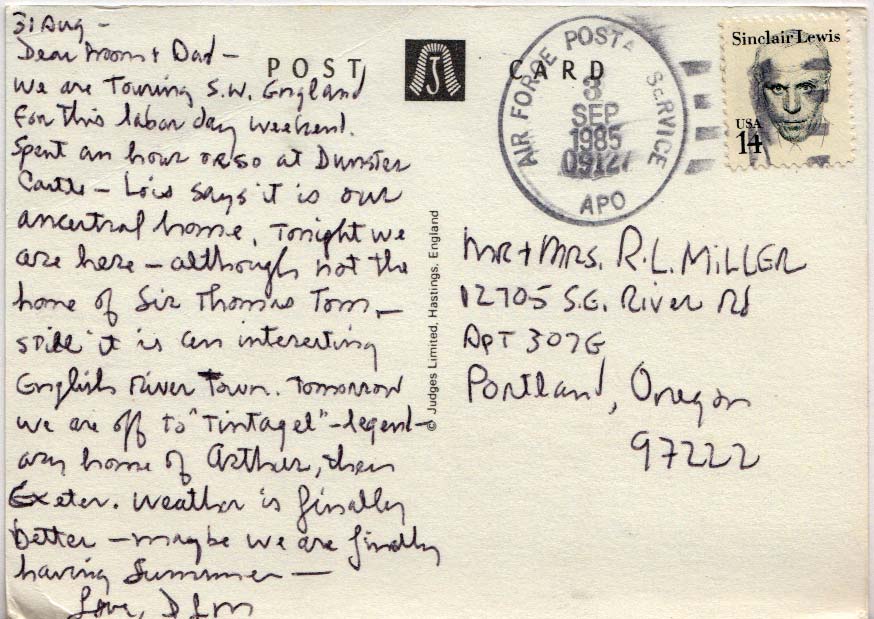 31 Aug -
Dear Mom + Dad -
We are touring S.W. England
for this labor day weekend.
Spent an hour or so at Dunster
Castle - Lois says it is our
ancestral home. Tonight we
are here - although not the
home of Sir Thomas Tom,
still it is an interesting
English River Town. Tomorrow
we are off to "Tintagel" - legend-
ary home of Arthur, then
Exeter. Weather is finally
better - maybe we are finally
having Summer -
Love, D
POST CARD
J
© Judges Limited, Hastings, England
AIR FORCE POSTAL SERVICE
3
SEP
1985
09127
APO
Sinclair Lewis
USA
14
Mr + Mrs. R.L. Miller
12705 S.E. River Rd
Apt 307G
Portland, Oregon
97222